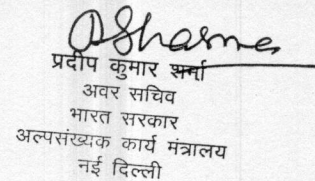 DSharma
प्रदीप कुमार शर्मा
अवर सचिव
भारत सरकार
अल्पसंख्यक कार्य मंत्रालय
नई दिल्ली